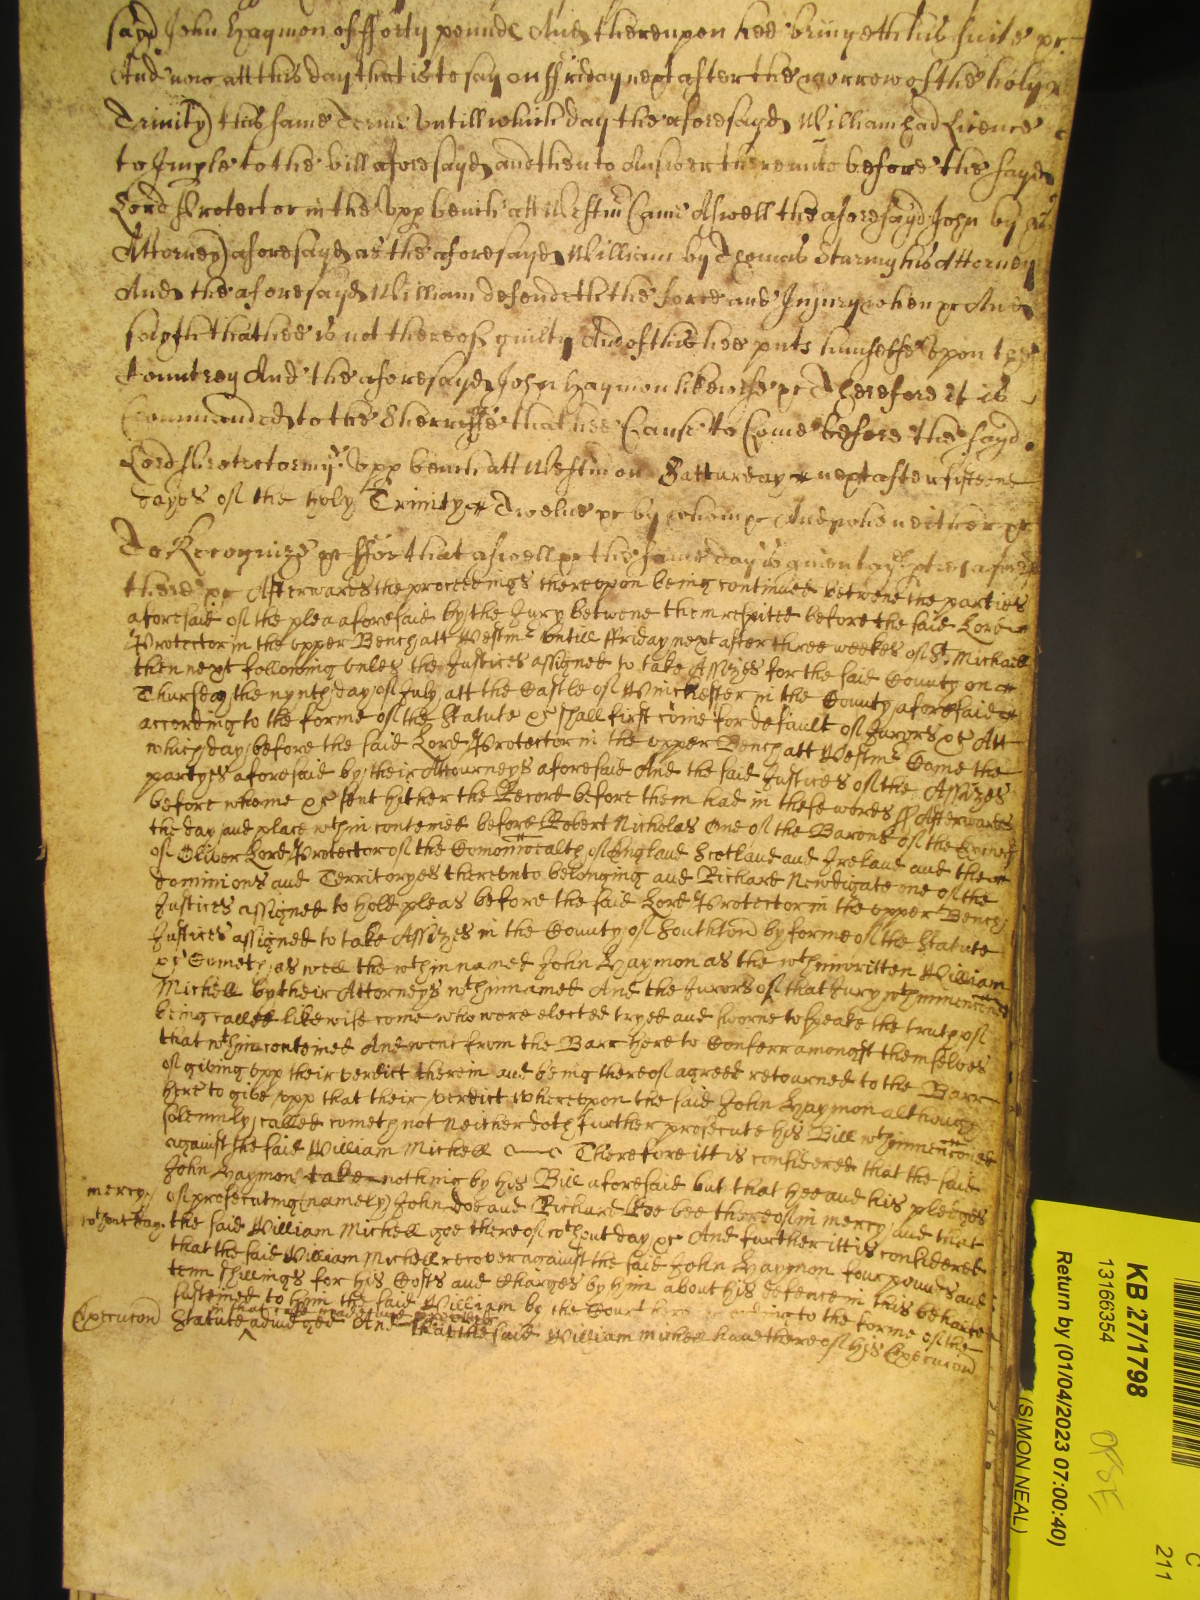 sayd John Haymon of fforty pounds And thereupon hee bringeth his suite &c
And now att this day that is to say on ffriday next after the morrow of the holy
Trinity this same Terme Vntill which day the aforesayd William had Licence
to Imple to the bill aforesayd and then to Answer thereunto before the sayd
Lord Protector in the Vpp bench att Westmr Came Aswell the aforesayd John by his
Attorney aforesayd as the aforesayd William by Thomas Sturmy his Attorney
And the aforesayd William defendeth the force and Injury when &c And
sayth that hee is not thereof guilty And of this hee puts himselfe Vpon the
Countrey And the aforesayd John Haymon likewise &c Therefore it is
Commanded to the Sherriffe that hee Cause to Come before the sayd
Lord Protector in ye Vpp bench att Westm on Satturday next after fifteene
dayes of the holy Trinity Twelve &c by whom &c And who neither &c
To Recognize &c ffor that aswell &c the same day is given to ye pties aforesd
there &c Afterwards the proceedings thereupon being continued betwene the parties
aforesaid of the plea aforesaid by the Jury betwene them respited before the said Lord
Protector in the upper Bench att Westmr Untill ffriday next after three weekes of St Michaell
then next following unles the Justices assigned to take Assizes for the said County on
Thursday the nynth day of July att the Castle of Winchester in the County aforesaid
according to the forme of the Statute &c shall first come for default of Jurors &c Att
which day before the said Lord Protector in the upper Bench att Westmr Come the
partyes aforesaid by their Attourneys aforesaid And the said Justices of the Assizes
before whome &c sent hither the Record before them had in these words ss Afterwards
the day and place wthin conteined before Robert Nicholas One of the Barons of the Excheqr
of Oliver Lord Protector of the Comonwealth of England Scotland and Ireland and the
dominions and Territoryes thereunto belonging and Richard Newdigate one of the
Justices assigned to hold pleas before the said Lord Protector in the upper Bench
Justices assigned to take Assizes in the County of Southton by forme of the Statute
&c Cometh as well the wthin named John Haymon as the wthinwritten William
Michell by their Attorneys wthinnamed And the Jurors of that Jury wthinmenconed
being called likewise come who were elected tryed and sworne to speake the truth of
that wthin conteined And went from the Barr here to Conferr amongst themselves
of giving upp their verdict therein and being thereof agreed retourned to the Barr
here to give upp that their verdict Whereupon the said John Haymon although
solemnly called cometh not Neither doth further prosecute his Bill wthinmenconed
against the said William Michell Therefore itt is considered that the said
John Haymon take nothing by his Bill aforesaid but that hee and his pledges
mercy of prosecuting (namely) John doe and Richard Roe bee thereof in mercy and that
wthout day. the said William Michell goe thereof wthout day &c And further itt is considered
that the said William Michell recover against the said John Haymon four pounds and
tenn shillings for his Costs and Charges by him about his defence in this behalfe
susteined to him the said William by the Court here according to the forme of the
in that case made and provided
Execucon Statute adiudged And that the said William Michell have thereof his Execucon
KB 27/1798
13166354
Return by (01/04/2023 07:00:40)
(SIMON NEAL)
C
211